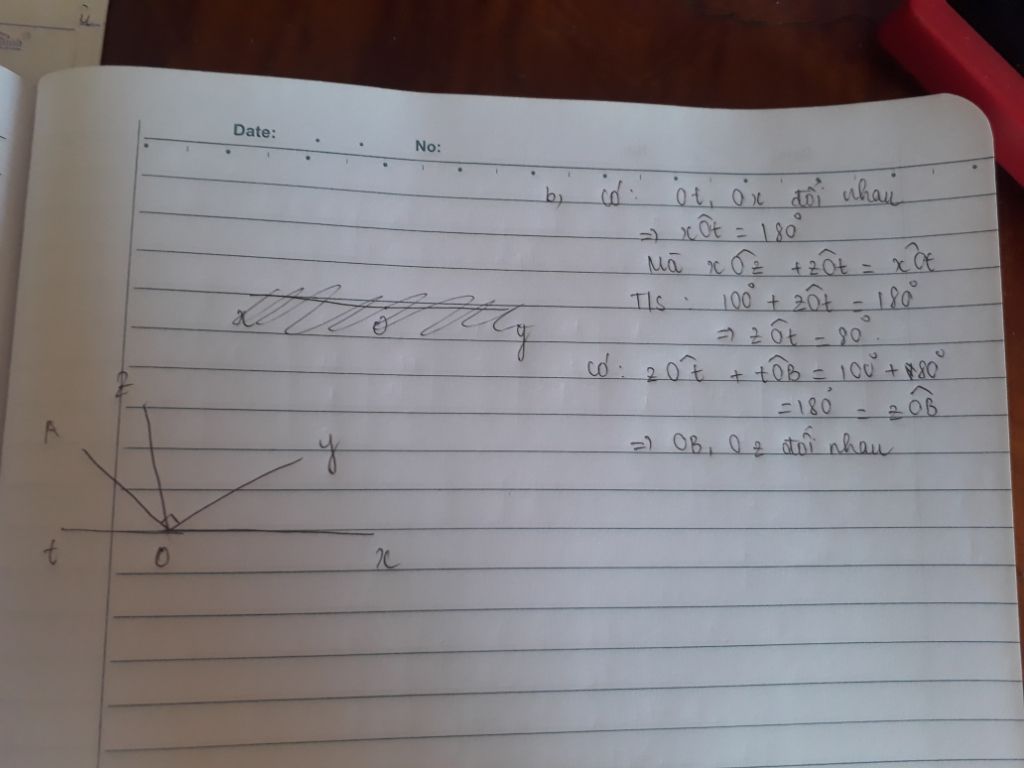 Date:
No:
b, Có: Ot, Ox đối nhau
=> xÔt = 180°
Mà xÔz + zÔt = xÔt
T/s: 100° + zÔt = 180°
=> zÔt = 80°.
Có: zÔt + tÔB = 100° + 80°
= 180° = zÔB
=> OB, Oz đối nhau
x O y
z
A
y
t O x